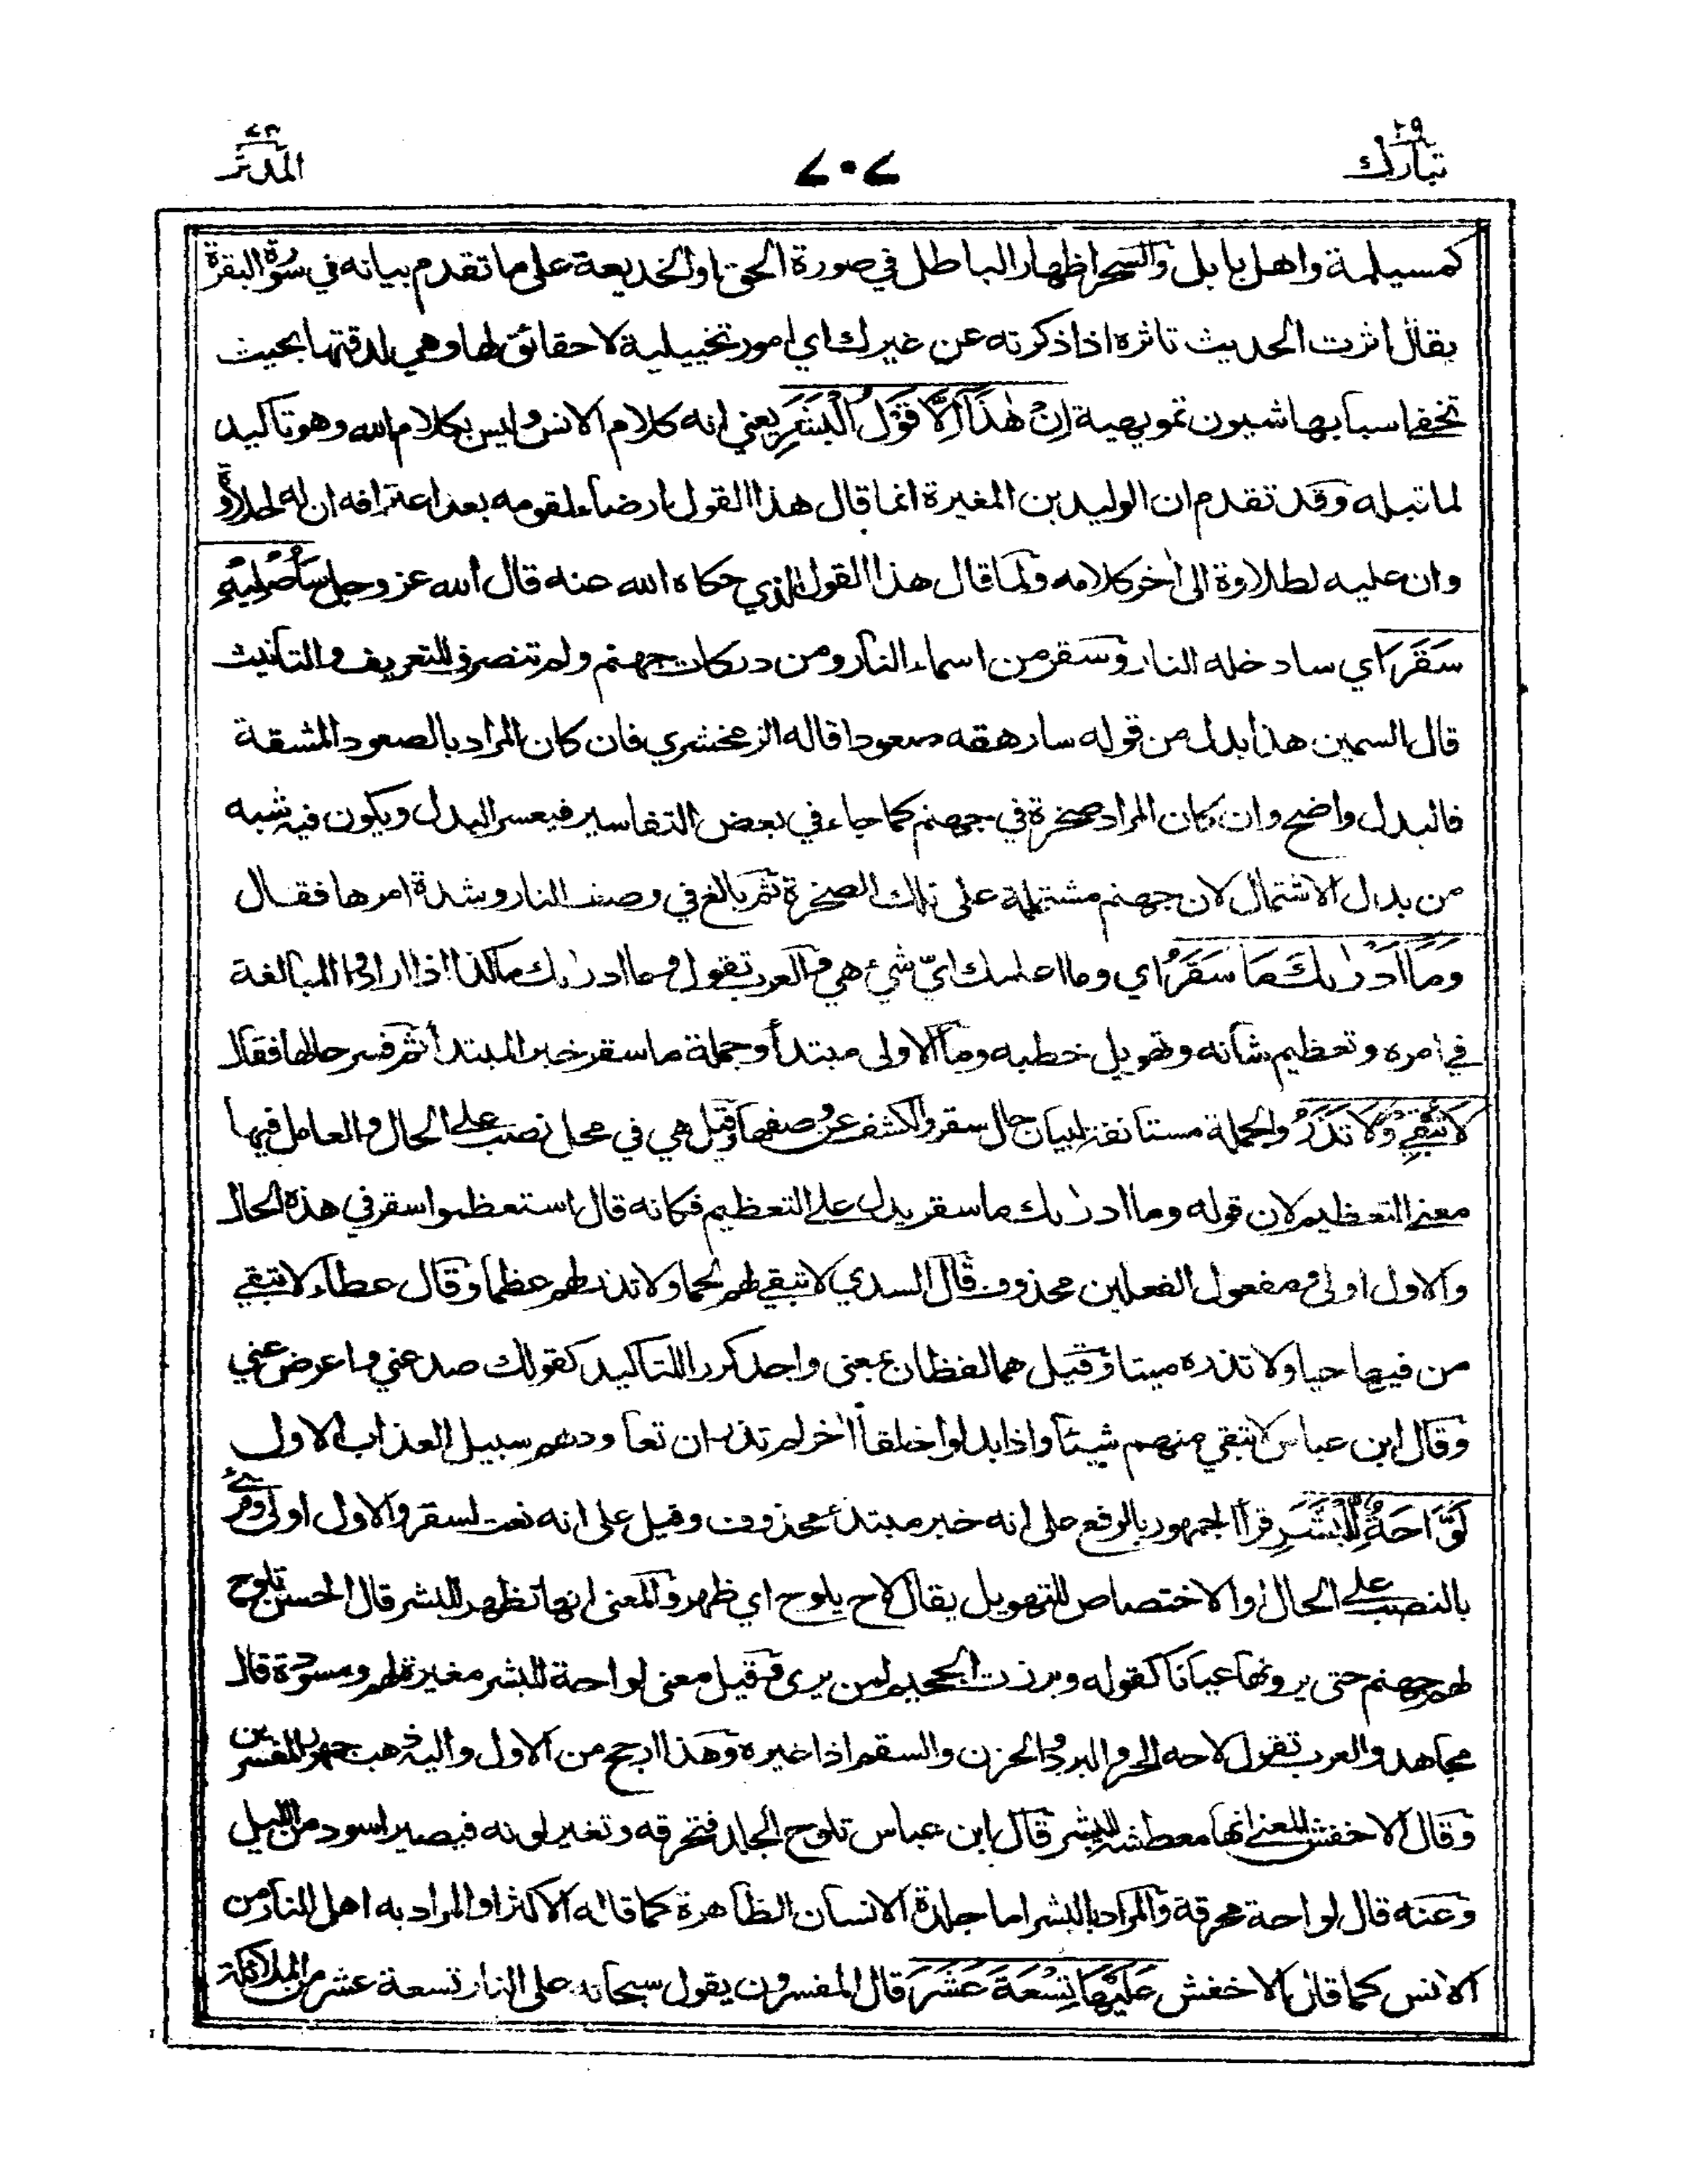 تبارك ٢٩
٧٠٧
المدثر ٧٤
كمسيلمة واهل بابل والسحر اظهار الباطل في صورة الحق او الخديعة على ما تقدم بيانه في سورة البقرة
يقال اثرت الحديث تاثره اذا ذكرته عن غيرك اي امور تخييلية لا حقائق لها وهي لدقتها بحيث
تخفى اسبابها شبون تمويهية اِنْ هٰذَآ اِلَّا قَوْلُ الْبَشَرِ يعني انه كلام الانس وليس بكلام الله وهو تأكيد
لما قبله وقد تقدم ان الوليد بن المغيرة انما قال هذا القول ارضاء لقومه بعد اعترافه ان له لحلاوة
وان عليه لطلاوة الى اٰخر كلامه ولما قال هذا القول الذي حكاه الله عنه قال الله عز وجل سَاُصْلِيْهِ
سَقَرَ اي سادخله النار وسقر من اسماء النار ومن دركات جهنم ولم تنصرف للتعريف والتأنيث
قال السمين هذا بدل من قوله سارهقه صعودا قاله الزمخشري فان كان المراد بالصعود المشقة
فالبدل واضح وان كان المراد صخرة في جهنم كما جاء في بعض التفاسير فيعسر البدل ويكون فيه شبه
من بدل الاشتمال لان جهنم مشتملة على تلك الصخرة ثم بالغ في وصف النار وشدة امرها فقال
وَمَآ اَدْرٰىكَ مَا سَقَرُ اي وما اعلمك ايّ شيء هي والعرب تقول وما ادرٰىك ما كذا اذا ارادوا المبالغة
في امره وتعظيم شأنه وتهويل خطبه وما الاولى مبتدأ وجملة ما سقر خبر المبتدأ ثم فسر حالها فقال
لَا تُبْقِيْ وَلَا تَذَرُ والجملة مستانفة لبيان حال سقر والكشف عن وصفها وقيل هي في محل نصب على الحال والعامل فيها
معنى التعظيم لان قوله وما ادرٰىك ما سقر يدل على التعظيم فكانه قال استعظموا سقر في هذه الحال
والاول اولى ومفعول الفعلين محذوف قال السدي لا تبقي لهم لحما ولا تذر لهم عظما وقال عطاء لا تبقي
من فيها حيا ولا تذره ميتا وقيل هما لفظان بمعنى واحد كررا للتاكيد كقولك صد عني واعرض عني
وقال ابن عباس لا تبقي منهم شيئا واذا بدلوا خلقاً اٰخر لم تذر ان تعاودهم سبيل العذاب الاول
لَوَّاحَةٌ لِّلْبَشَرِ قرأ الجمهور بالرفع على انه خبر مبتدء محذوف وقيل على انه نعت لسقر والاول اولى وقرئ
بالنصب على الحال او الاختصاص للتهويل يقال لاح يلوح اي ظهر والمعنى انها تظهر للبشر قال الحسن تلوح
لهم جهنم حتى يرونها عيانا كقوله وبرزت الجحيم لمن يرى وقيل معنى لواحة للبشر مغيرة لهم ومسودة قال
مجاهد والعرب تقول لاحه الحر والبرد والحزن والسقم اذا غيره وهذا ارجح من الاول واليه ذهب جمهور المفسرين
وقال الاخفش المعنى انها معطشة للبشر قال ابن عباس تلوح الجلد فتحرقه وتغير لونه فيصير اسود من الليل
وعنه قال لواحة محرقة والمراد بالبشر اما جلدة الانسان الظاهرة كما قاله الاكثر او المراد به اهل النار من
الانس كما قال الاخفش عَلَيْهَا تِسْعَةَ عَشَرَ قال المفسرون يقول سبحانه على النار تسعة عشر من الملائكة